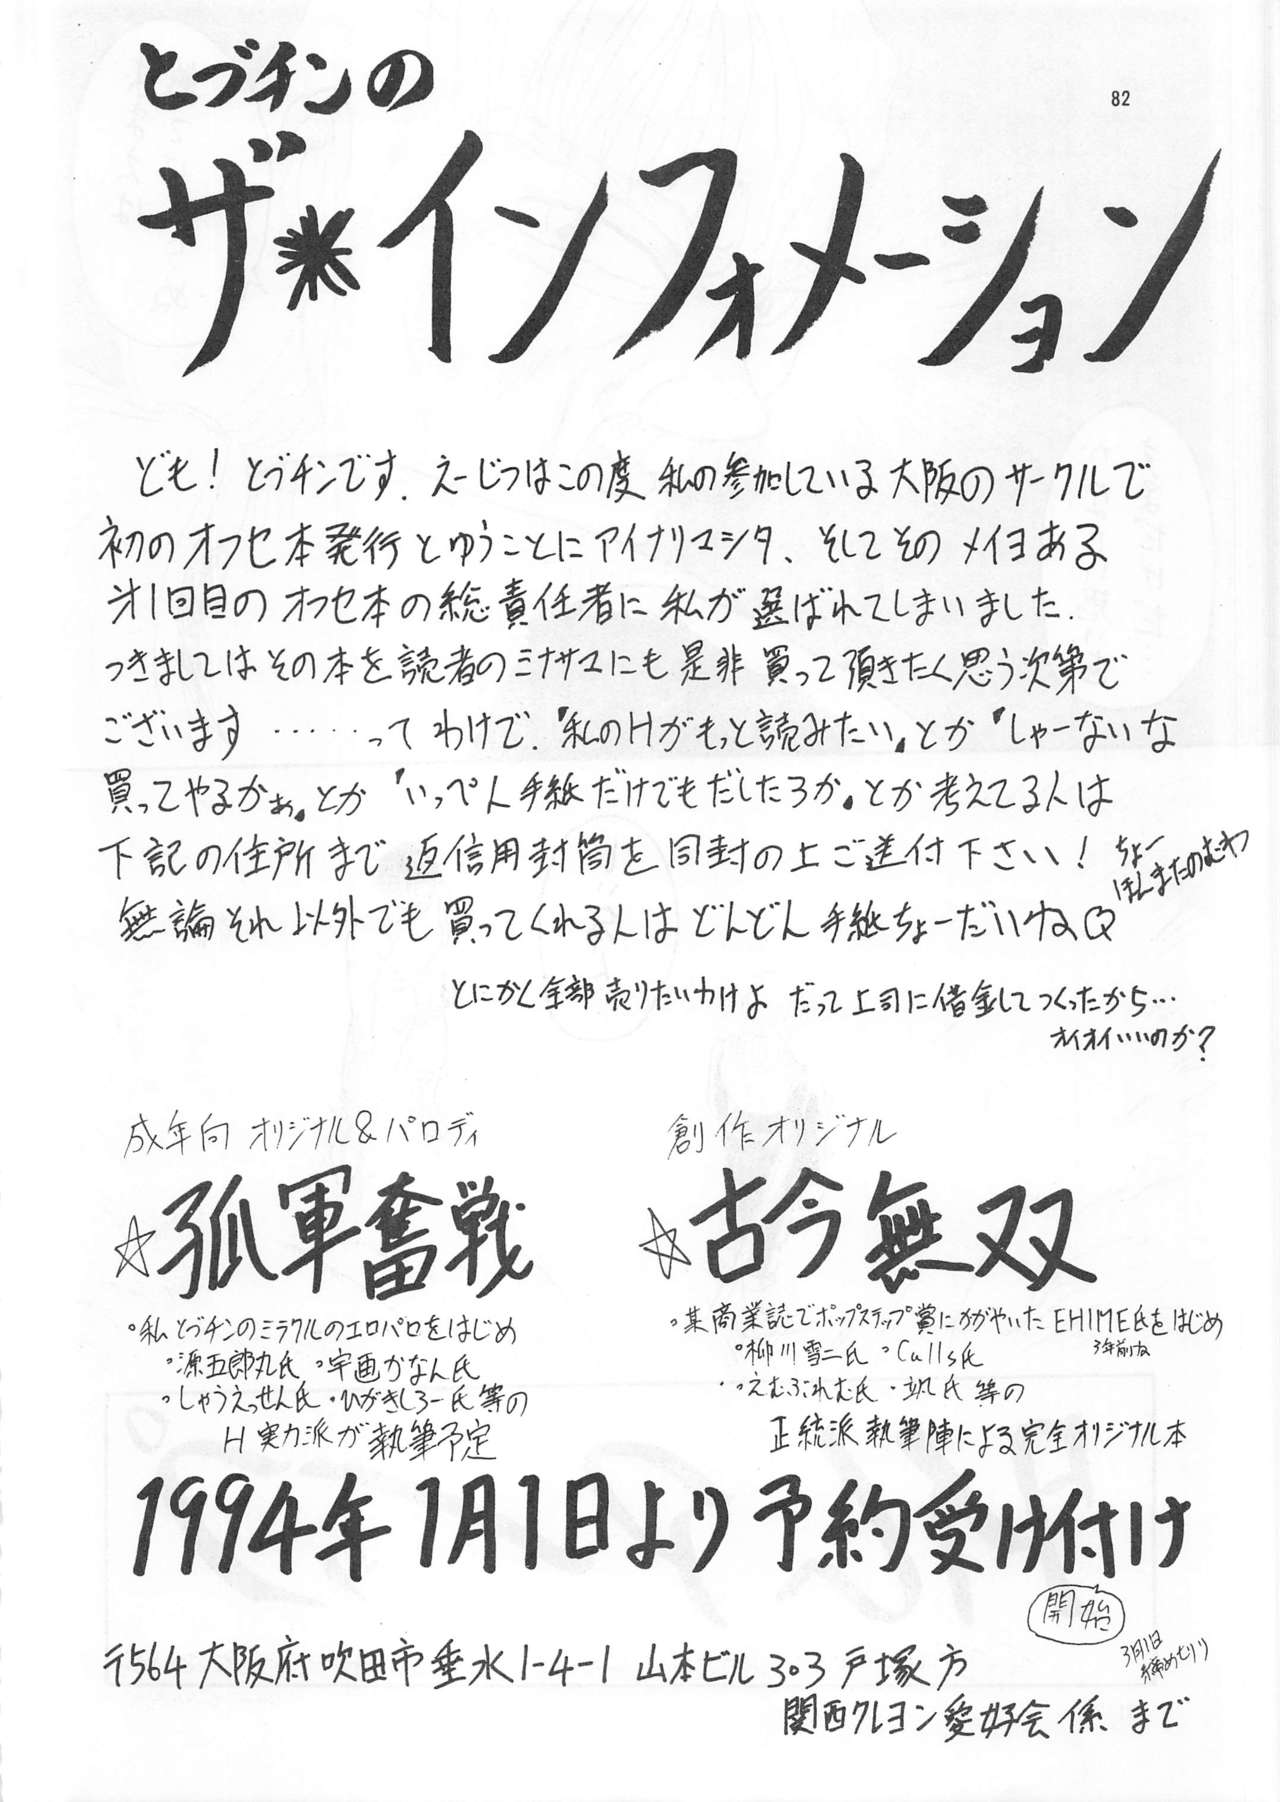 82
とブチンの
ザ＊インフォメーション
ども！とブチンです．えーじつはこの度 私の参加している大阪のサークルで
初のオフセ本発行とゆうことにアイナリマシタ、そしてそのメイヨある
㐧1回目のオフセ本の総責任者に私が選ばれてしまいました．
つきましてはその本を読者のミナサマにも是非買って頂きたく思う次第で
ございます ……って わけで．『私のHがもっと読みたい』とか『しゃーないな
買ってやるかぁ』とか『いっぺん手紙だけでもだしたろか』とか考えてる人は
下記の住所まで返信用封筒を同封の上ご送付下さい！ ちょー
ほんまたのむわ
無論それ以外でも買ってくれる人はどんどん手紙ちょーだいねQ
とにかく全部売りたいわけよ だって上司に借金してつくったから…
オイオイいいのか？
成年向 オリジナル＆パロディ
☆孤軍奮戦
°私とブチンのミラクルのエロパロをはじめ
°源五郎丸氏 °宇画かなん氏
°しゃうえっせん氏・ひがきしろー氏等の
H実力派が執筆予定
創作オリジナル
☆古今無双
°某商業誌でポップステップ賞にかがやいたEHIME氏をはじめ
3年前だね
°柳川雪二氏 °Culls氏
・°えむぶれむ氏・颯氏等の
正統派執筆陣による完全オリジナル本
1994年1月1日より予約受け付け
開始
〒564 大阪府吹田市垂水1-4-1 山本ビル303 戸塚方
3月1日
締めきり
関西クレヨン愛好会係 まで